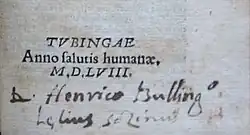 TVBINGAE
Anno salutis humanæ,
M.D.LVIII.
D. Henrico Bullingo
Lelius Sozinus